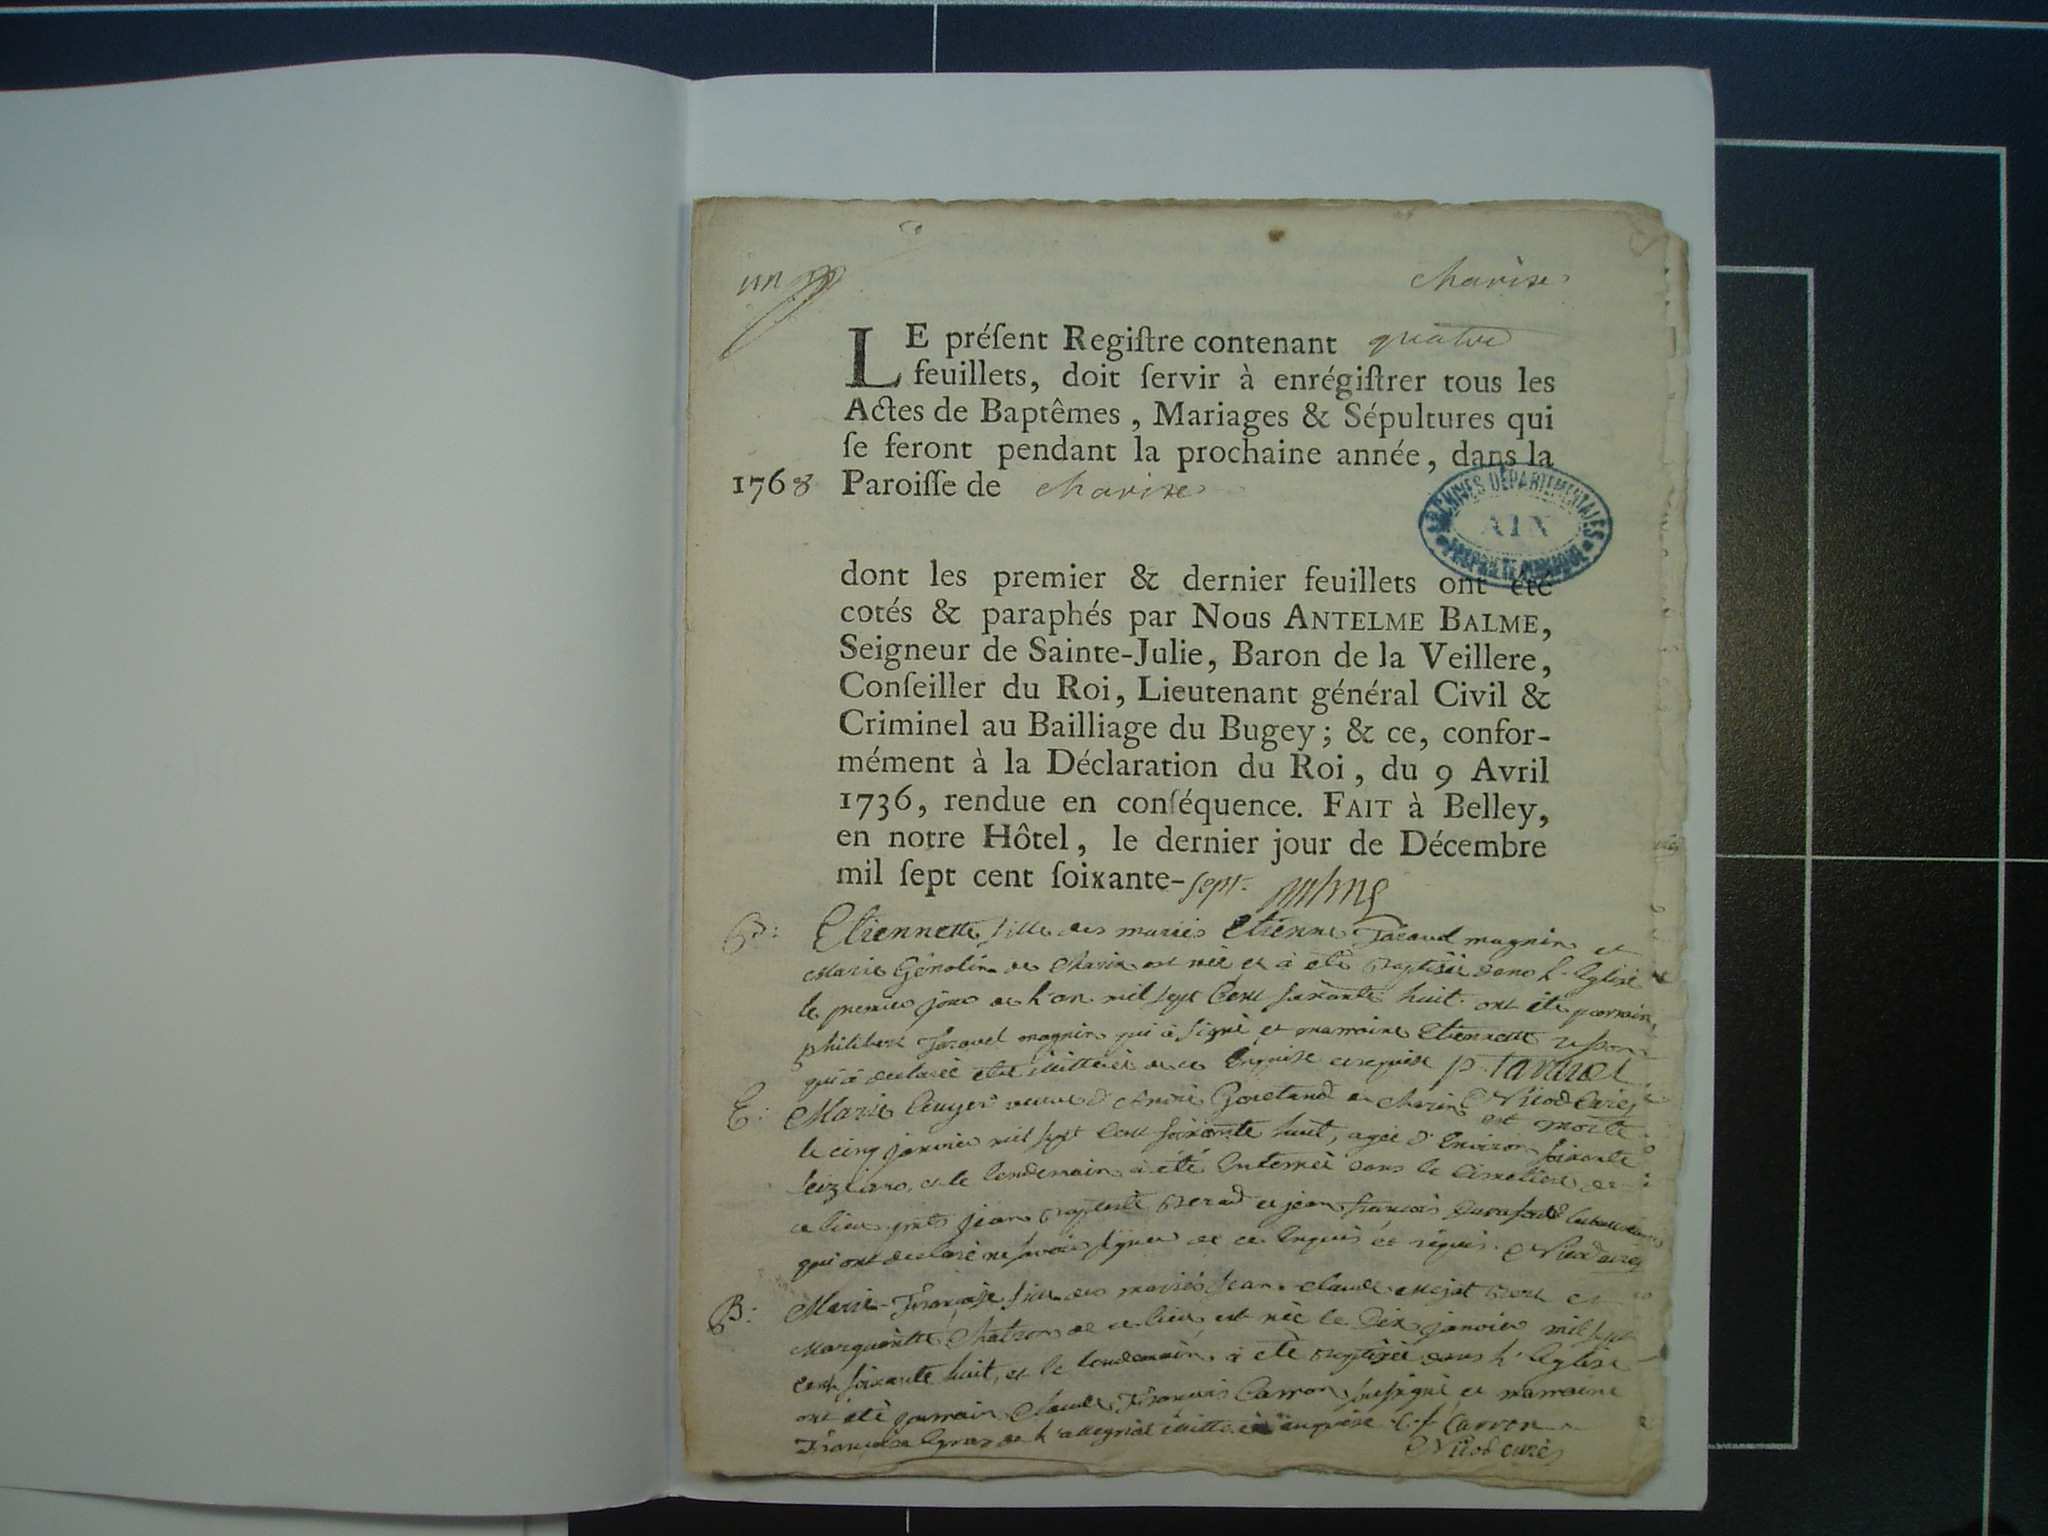 un
charix
LE préſent Regiſtre contenant quatre
feuillets, doit ſervir à enrégiſtrer tous les
Actes de Baptêmes, Mariages & Sépultures qui
ſe feront pendant la prochaine année, dans la
1768 Paroiſſe de charix
ARCHIVES DÉPARTEMENTALES
AIN
PROPRIÉTÉ PUBLIQUE
dont les premier & dernier feuillets ont été
cotés & paraphés par Nous ANTELME BALME,
Seigneur de Sainte-Julie, Baron de la Veillere,
Conſeiller du Roi, Lieutenant général Civil &
Criminel au Bailliage du Bugey; & ce, confor-
mément à la Déclaration du Roi, du 9 Avril
1736, rendue en conſéquence. FAIT à Belley,
en notre Hôtel, le dernier jour de Décembre
mil ſept cent ſoixante-sept
B: Etiennette fille des mariés Etienne magnin et
Marie de Charix est née et à eté baptisée dans l'Eglise
le premier jour de l'an mil sept cent soixante huit. ont été parrain
philibert magnin qui à signé et marraine Etiennette
qui à declaré etre illitérée de ce enquise et requise
E: Marie veuve d'André de Charix Nicod curé
est morte
le cinq janvier mil sept cent soixante huit, agée d'environ soixante
seize ans, et le lendemain à été enterrée dans le cimetiere de
ce lieu jean baptiste et jean françois
qui ont declaré ne savoir signer de ce enquis et requis. Nicod curé
B: Marie-Françoise fille des mariés Jean-claude et
Marguerite de ce lieu est née le dix janvier mil sept
cent soixante huit, et le lendemain à eté baptisée dans l'Eglise
ont été parrain Claude François Carron soussigné et marraine
Françoise de illitérée enquise C. f Carron
Nicod curé